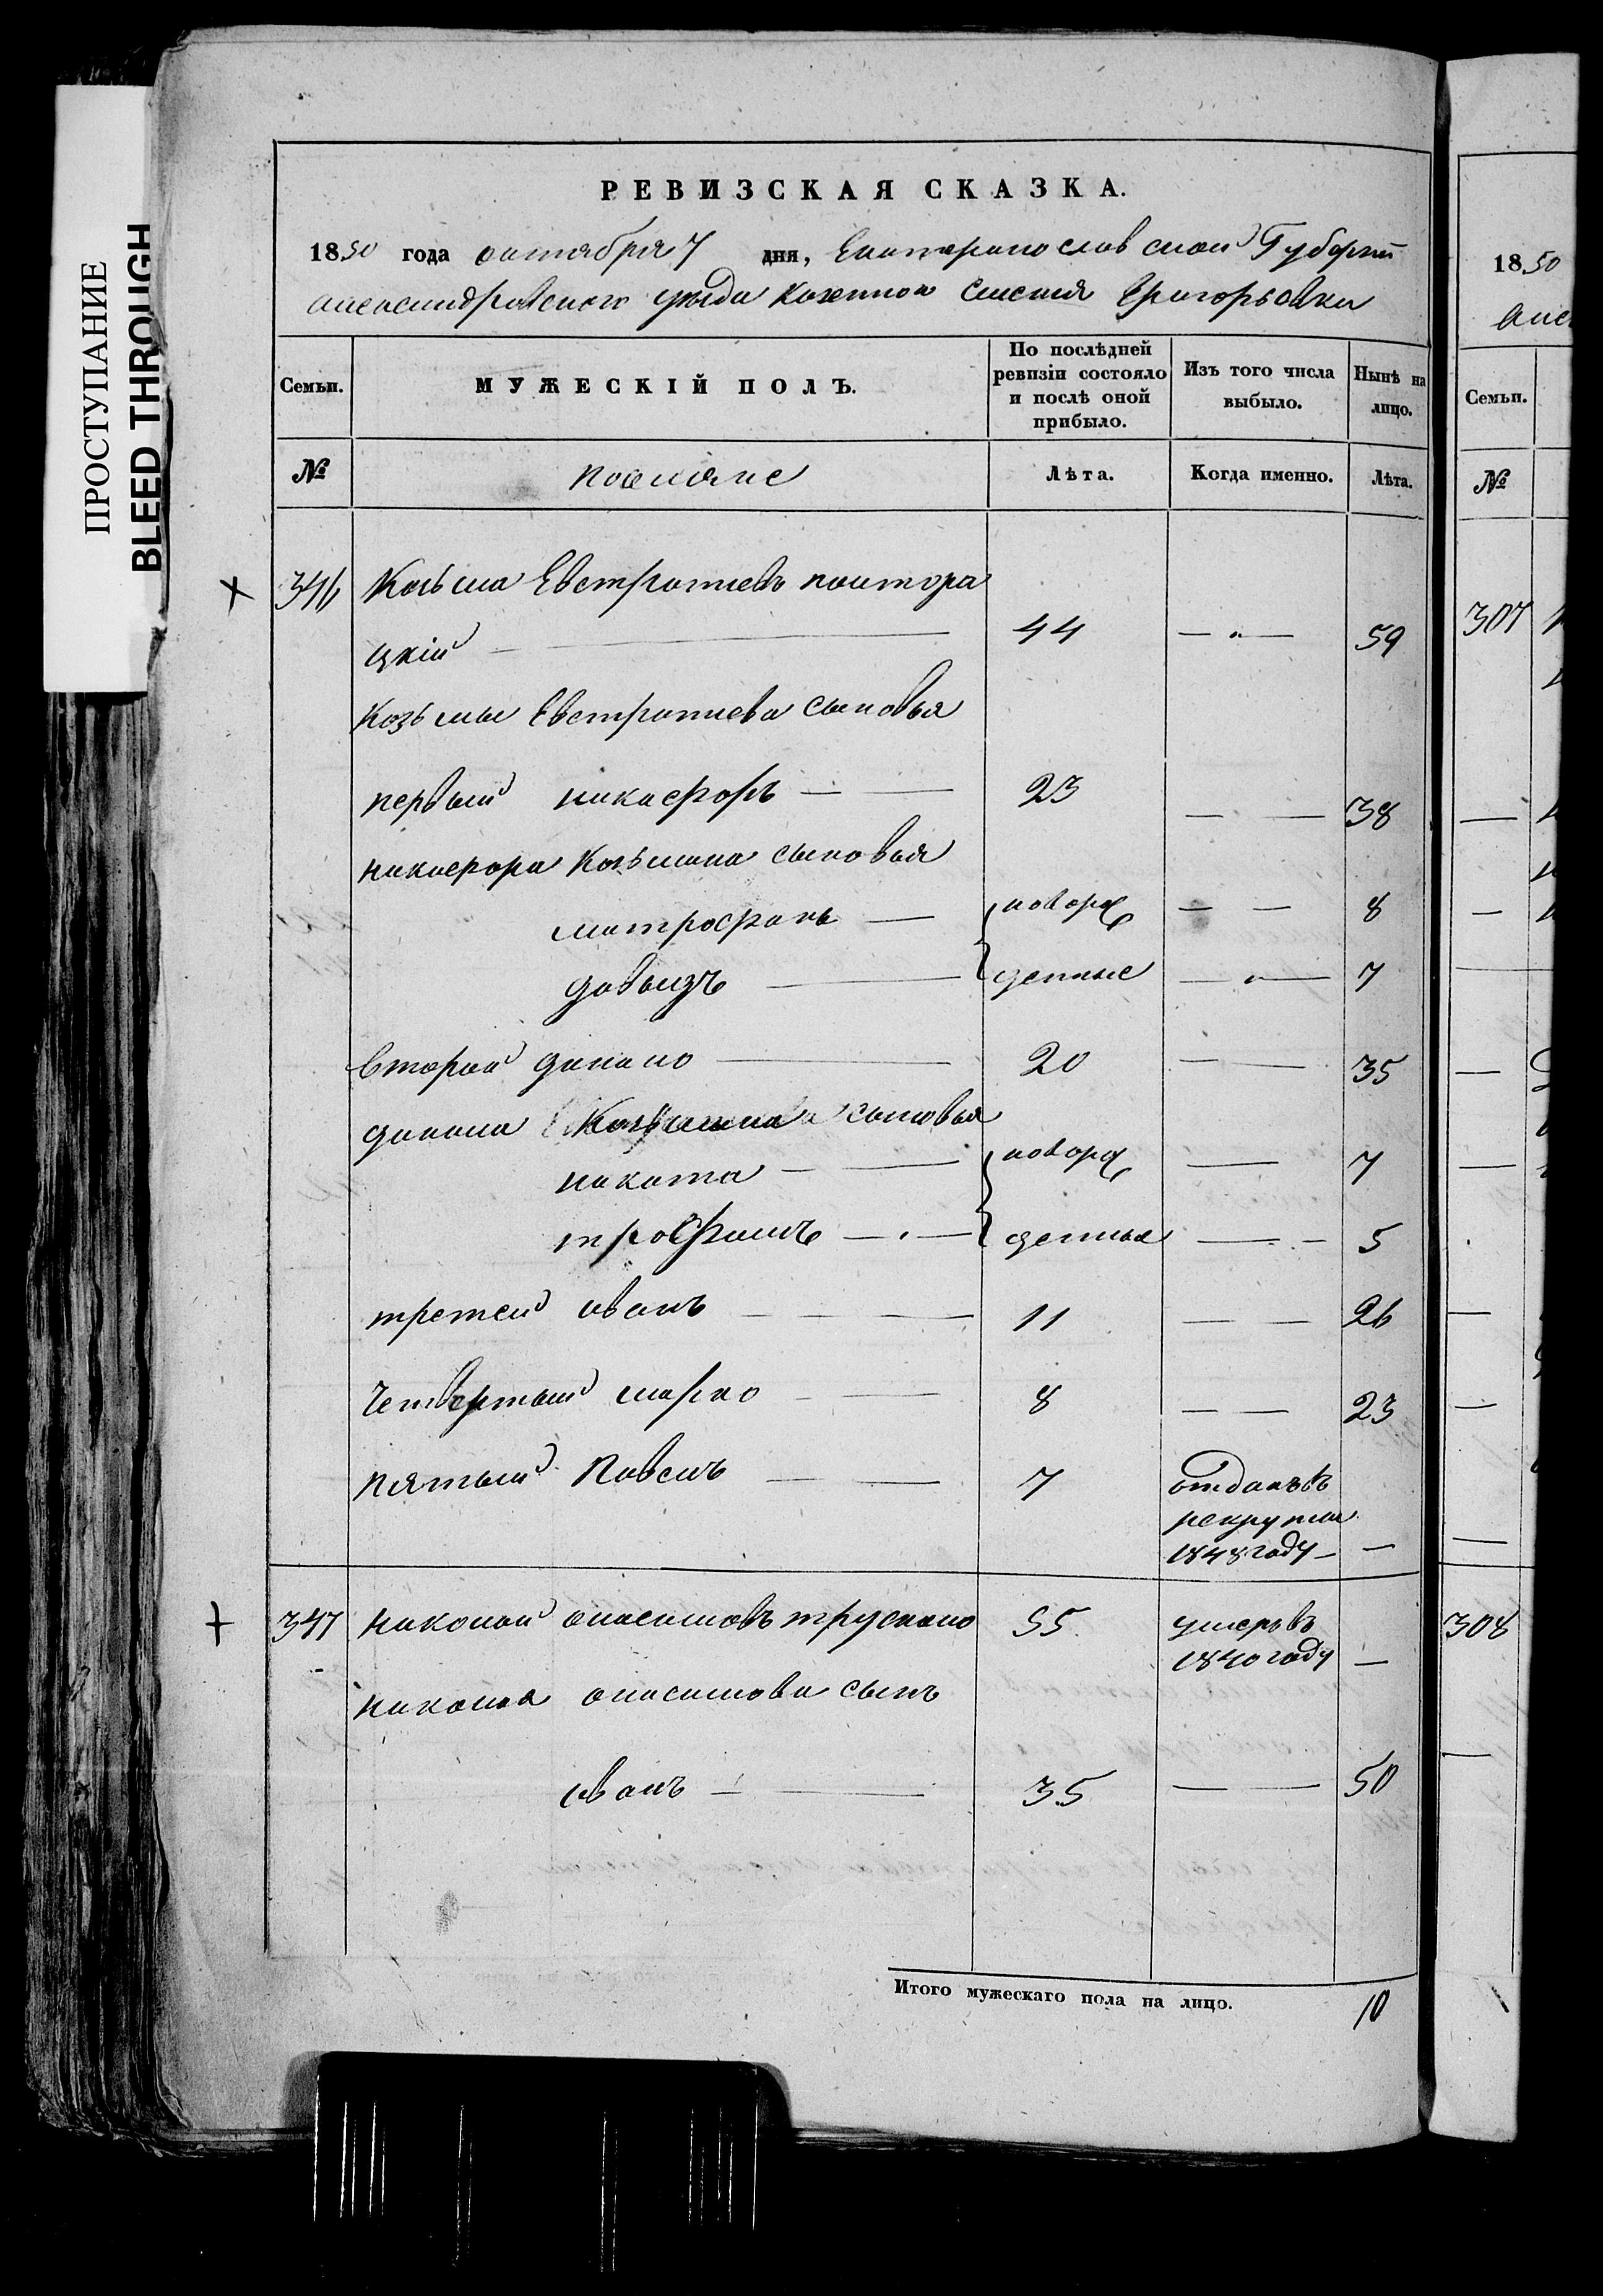 ПРОСТУПАНИЕ
BLEED THROUGH
РЕВИЗСКАЯ СКАЗКА.
1850 года октября 7 дня, Екатеринославской Губерніи
Александровского уезда Казенного Селенія Григоровки
Семьи. МУЖЕСКІЙ ПОЛЪ. По послѣдней ревизіи состояло и послѣ оной прибыло. Изъ того числа выбыло. Нынѣ на лицо.
№ Лѣта. Когда именно. Лѣта.
346 Козьма Евстратиевъ полтора
цкій 44 59
Козьмы Евстратиева сыновья
первый никифоръ 23 38
никифора Козьмина сыновья
митрофанъ новорж 8
давыдъ денные 7
второй данило 20 35
данила Козьмина сыновья
никита новорж 7
трофимъ денные 5
третей иванъ 11 26
четвертый марко 8 23
пятый Павелъ 7 отданъ въ
рекруты
1848 году —
347 николай онисимовъ трускало 55 умеръ въ
1840 году —
николая онисимова сынъ
иванъ 35 50
Итого мужескаго пола на лицо. 10
1850
Семьи.
№
307
308